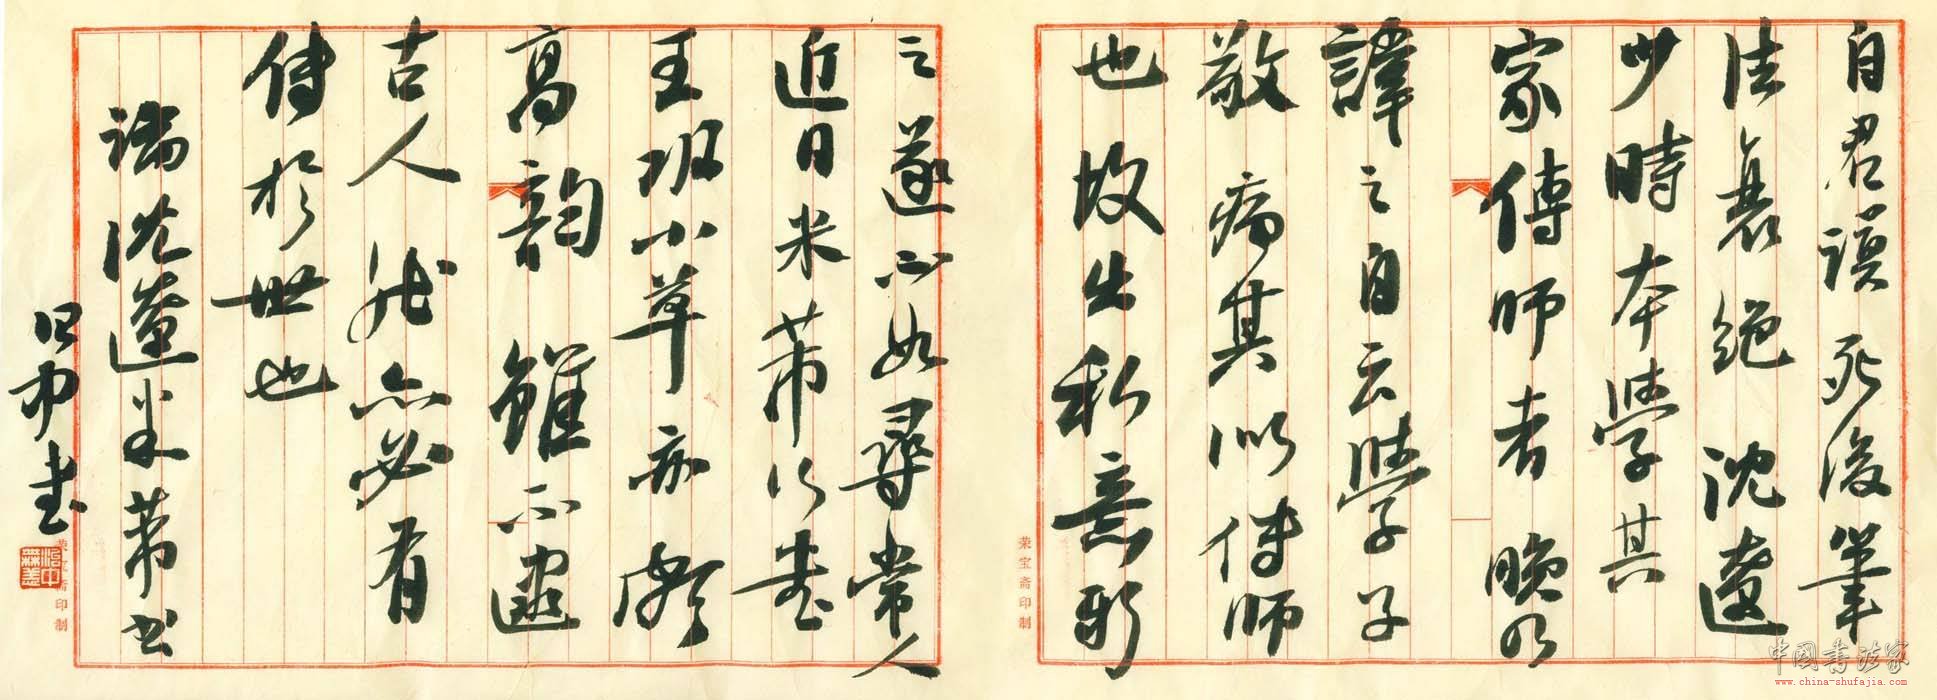 自君謨死後筆
法衰絕沈遼
少時本學其
家傳師者晚乃
諱之自云學子
敬病其似傳師
也故出私意新
之遂不如尋常人
近日米芾行書
王鞏小草亦頗
高韻雖不逮
古人然亦必有
傳於世也
論沈遼米芾書
書
荣宝斋印制
荣宝斋印制
中國書法家
www.china-shufajia.com